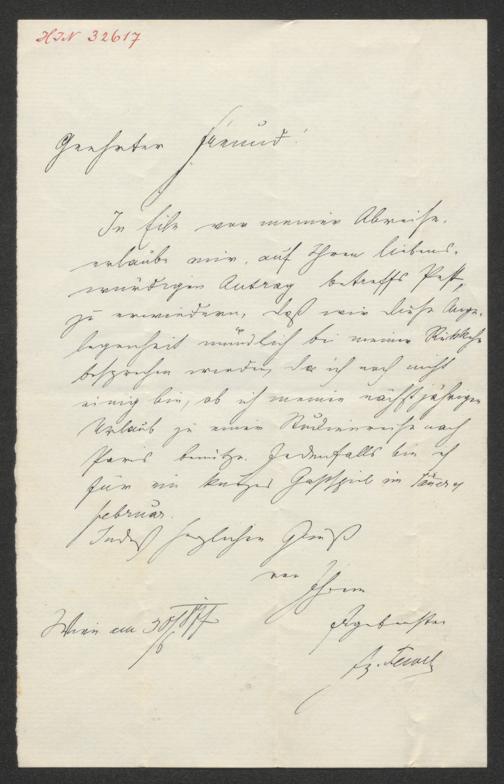 HIN 32617
Geehrter Freund!
In Eile vor meiner Abreise,
erlaube mir, auf Ihren liebens-
würdigen Antrag betreffs Pest,
zu erwiedern, daß wir diese Ange-
legenheit mündlich bei meiner Rükkehr
besprechen werden, da ich noch nicht
einig bin, ob ich meinen nächstjährigen
Urlaub zu einer Studienreise nach
Paris benütze. Jedenfalls bin ich
für ein kurzes Gastspiel im
Februar.
Indeß herzlichen Gruß
von Ihrem
Ergebensten
Wien am 30/6
Fz.